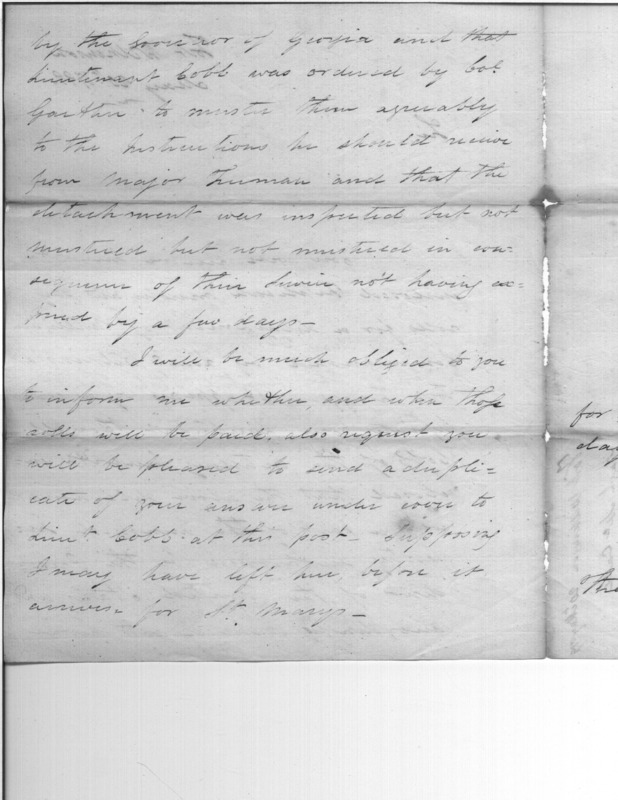 by the Governor of Georgia and that
Lieutenant Cobb was ordered by Col
Gaither to muster them agreeably
to the instructions he should receive
from Major Freeman and that the
detachment was inspected but not
mustered but not mustered in con-
sequence of their Service not having ex-
pired by a few days—
I will be much obliged to you
to inform me whether, and when those
rolls will be paid. also request you
will be pleased to send a dupli=
cate of your answer under cover to
Lieut Cobb at this post— Supposing
I may have left here, before it
arrives for St. Marys—
for
day
The